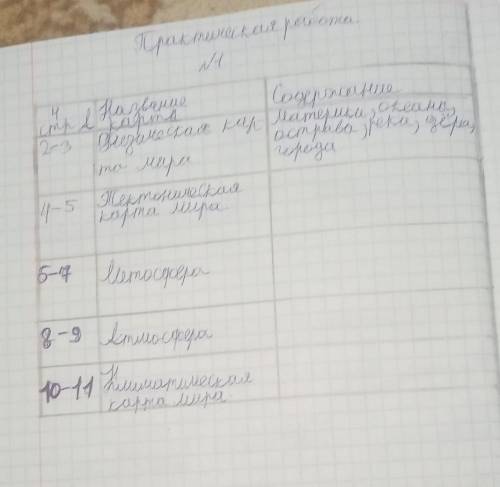 Практическая работа.
№1
ч
стр
Название
карта
Содержание
2-3
Физическая кар
та мира
материки, океаны,
острова, реки, озёра,
города
4-5
Тектоническая
карта мира
6-7
Литосфера
8-9
Атмосфера
10-11
Климатическая
карта мира